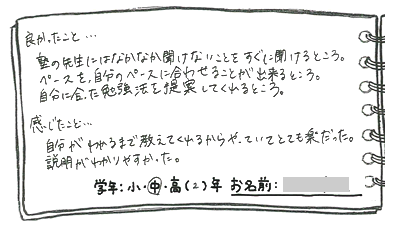 良かったこと…
塾の先生にはなかなか聞けないことをすぐに聞けるところ。
ペースを、自分のペースに合わせることが出来るところ。
自分に合った勉強法を提案してくれるところ。
感じたこと…
自分がわかるまで教えてくれるからやっていてとても楽だった。
説明がわかりやすかった。
学年:小・中・高(2)年 お名前: